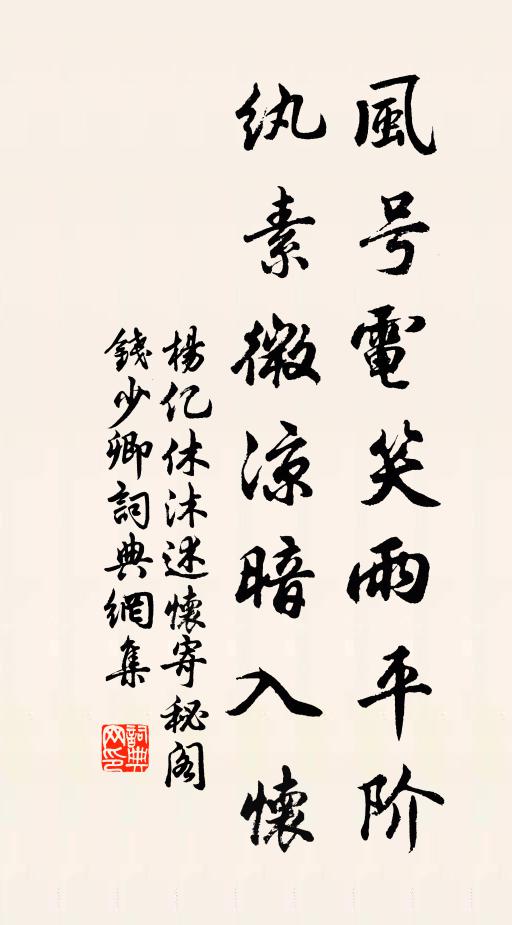 風号電笑雨平阶
纨素微凉暗入懷
楊亿休沐述懷寄秘阁
錢少卿詞典網集
詞典网印